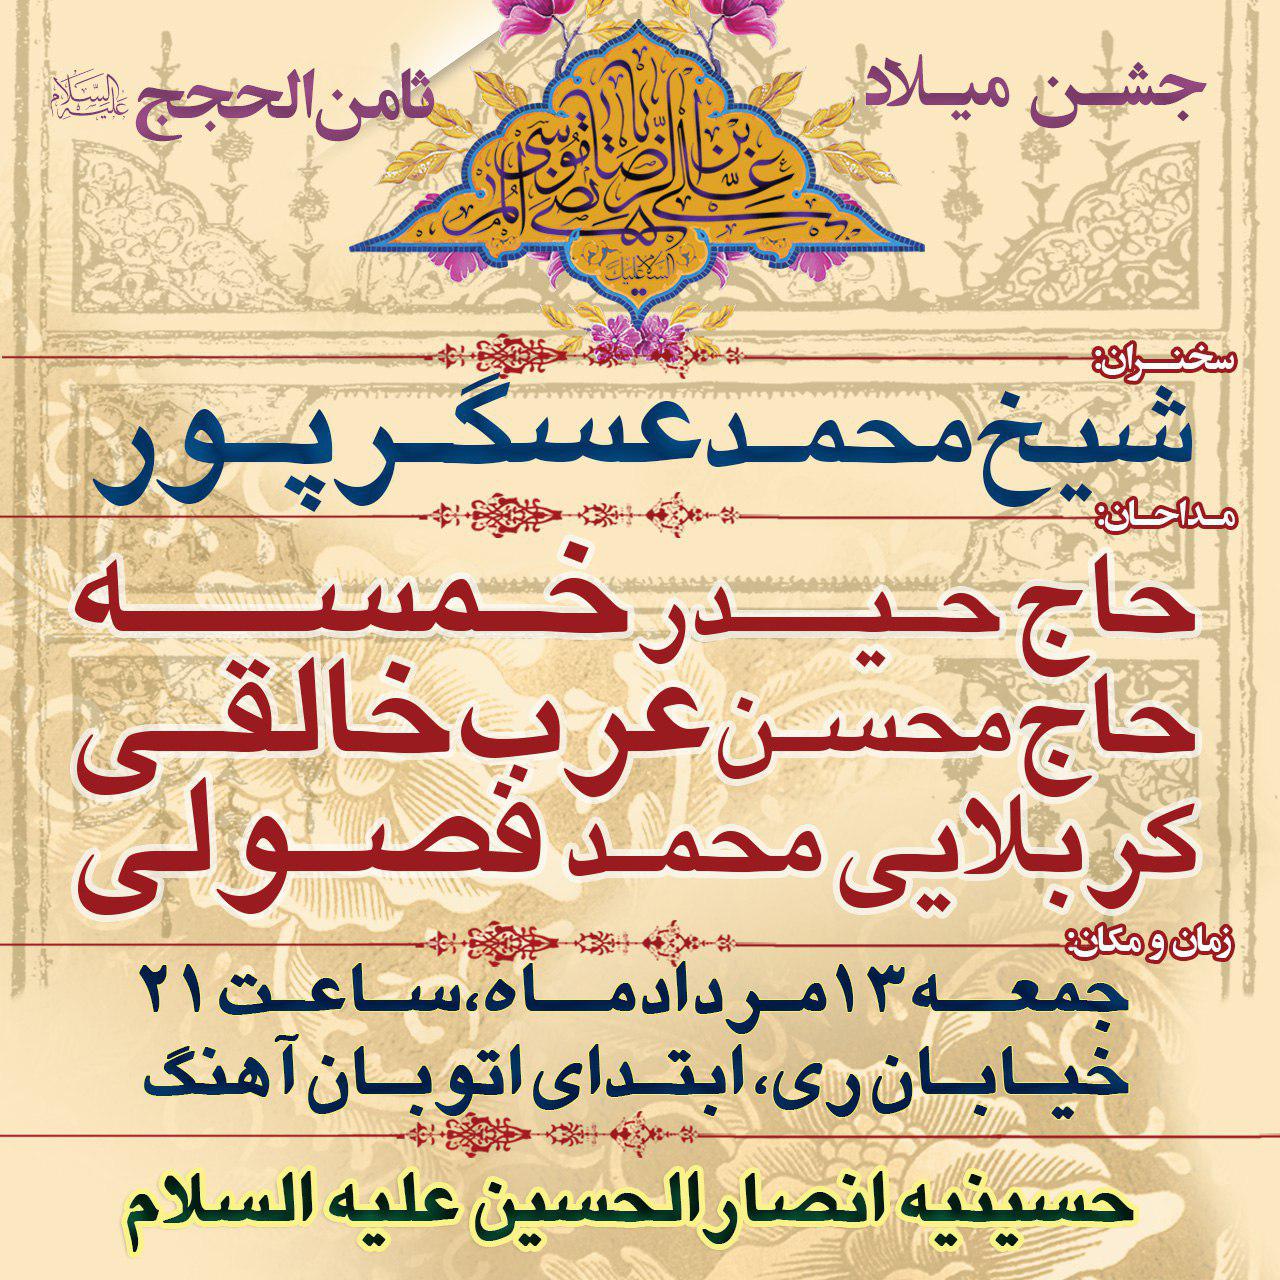 جشن میلاد
ثامن الحجج علیه السلام
علی بن موسی الرضا المرتضی
السلام علیک
سخنران:
شیخ محمد عسگرپور
مداحان:
حاج حیدر خمسه
حاج محسن عرب خالقی
کربلایی محمد فصولی
زمان و مکان:
جمعه ۱۳ مردادماه، ساعت ۲۱
خیابان ری، ابتدای اتوبان آهنگ
حسینیه انصارالحسین علیه السلام